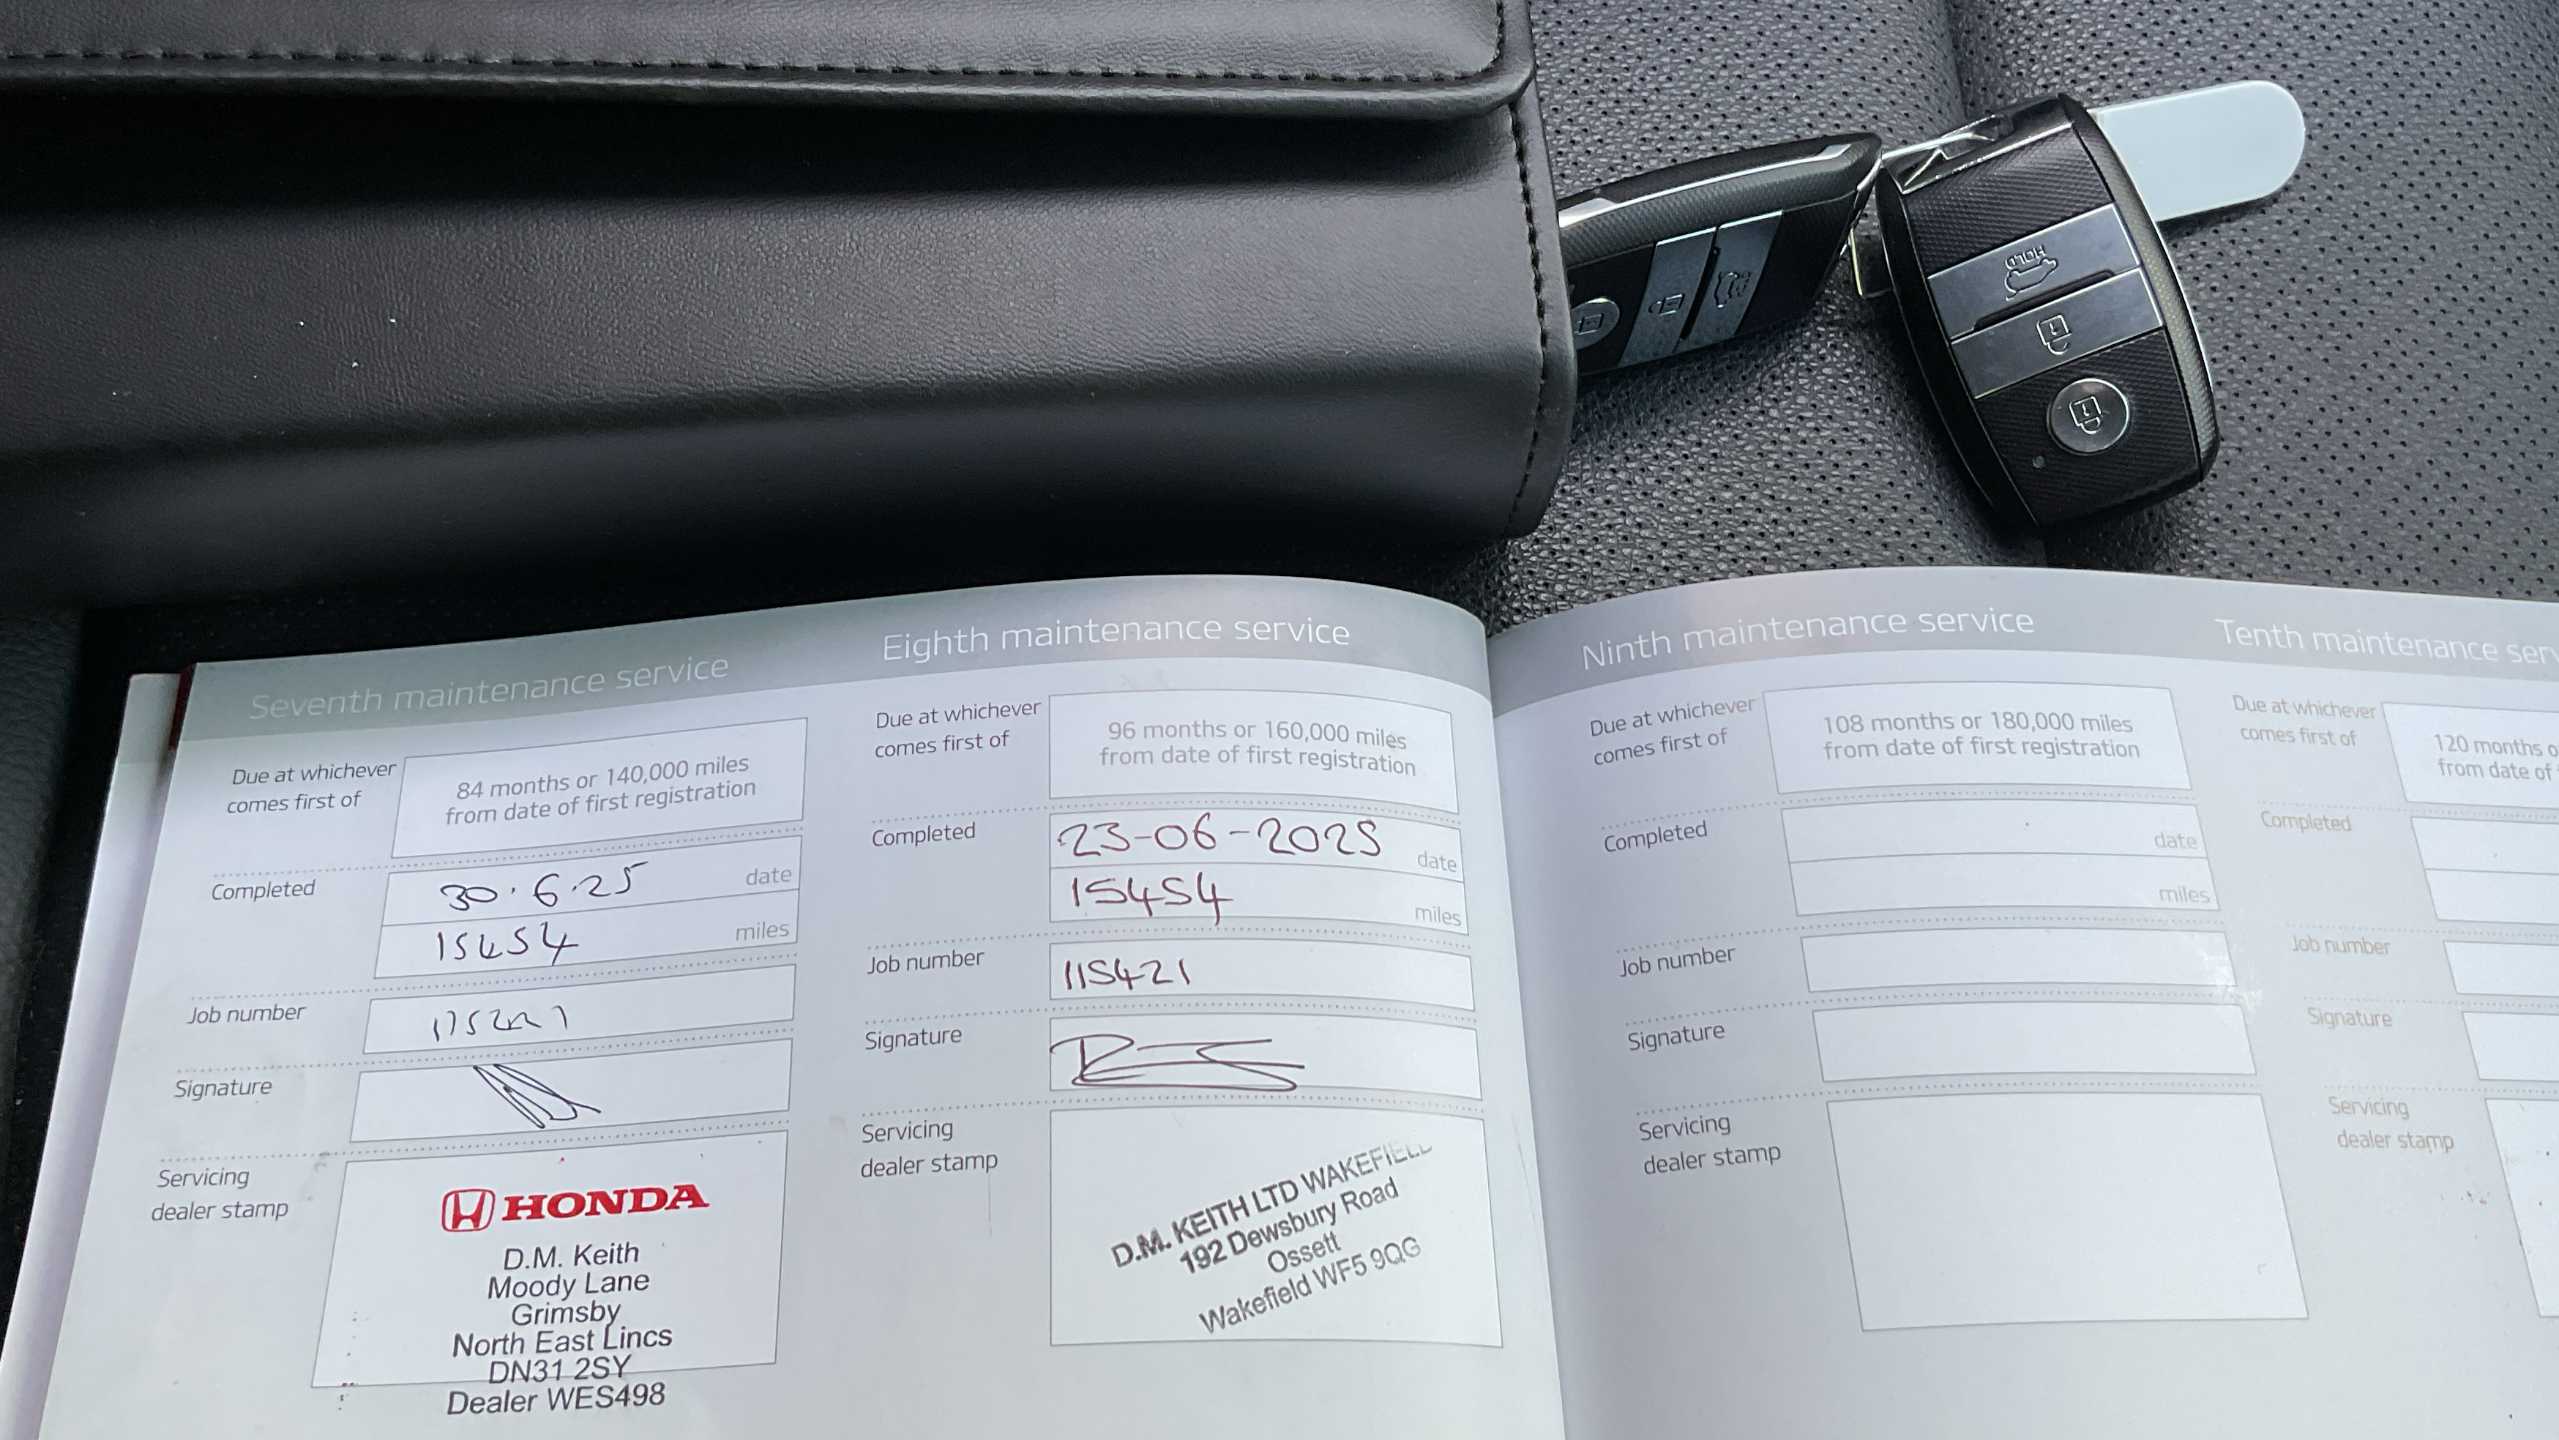 HOLD
Seventh maintenance service
Due at whichever
comes first of
84 months or 140,000 miles
from date of first registration
Completed
30.6.25 date
15454 miles
Job number
Signature
Servicing
dealer stamp
HONDA
D.M. Keith
Moody Lane
Grimsby
North East Lincs
DN31 2SY
Dealer WES498
Eighth maintenance service
Due at whichever
comes first of
96 months or 160,000 miles
from date of first registration
Completed
23-06-2025 date
15454 miles
Job number
115421
Signature
Servicing
dealer stamp
D.M. KEITH LTD WAKEFIELD
192 Dewsbury Road
Ossett
Wakefield WF5 9QG
Ninth maintenance service
Due at whichever
comes first of
108 months or 180,000 miles
from date of first registration
Completed
date
miles
Job number
Signature
Servicing
dealer stamp
Tenth maintenance
Due at whichever
comes first of
120 months
from date of
Completed
Job number
Signature
Servicing
dealer stamp